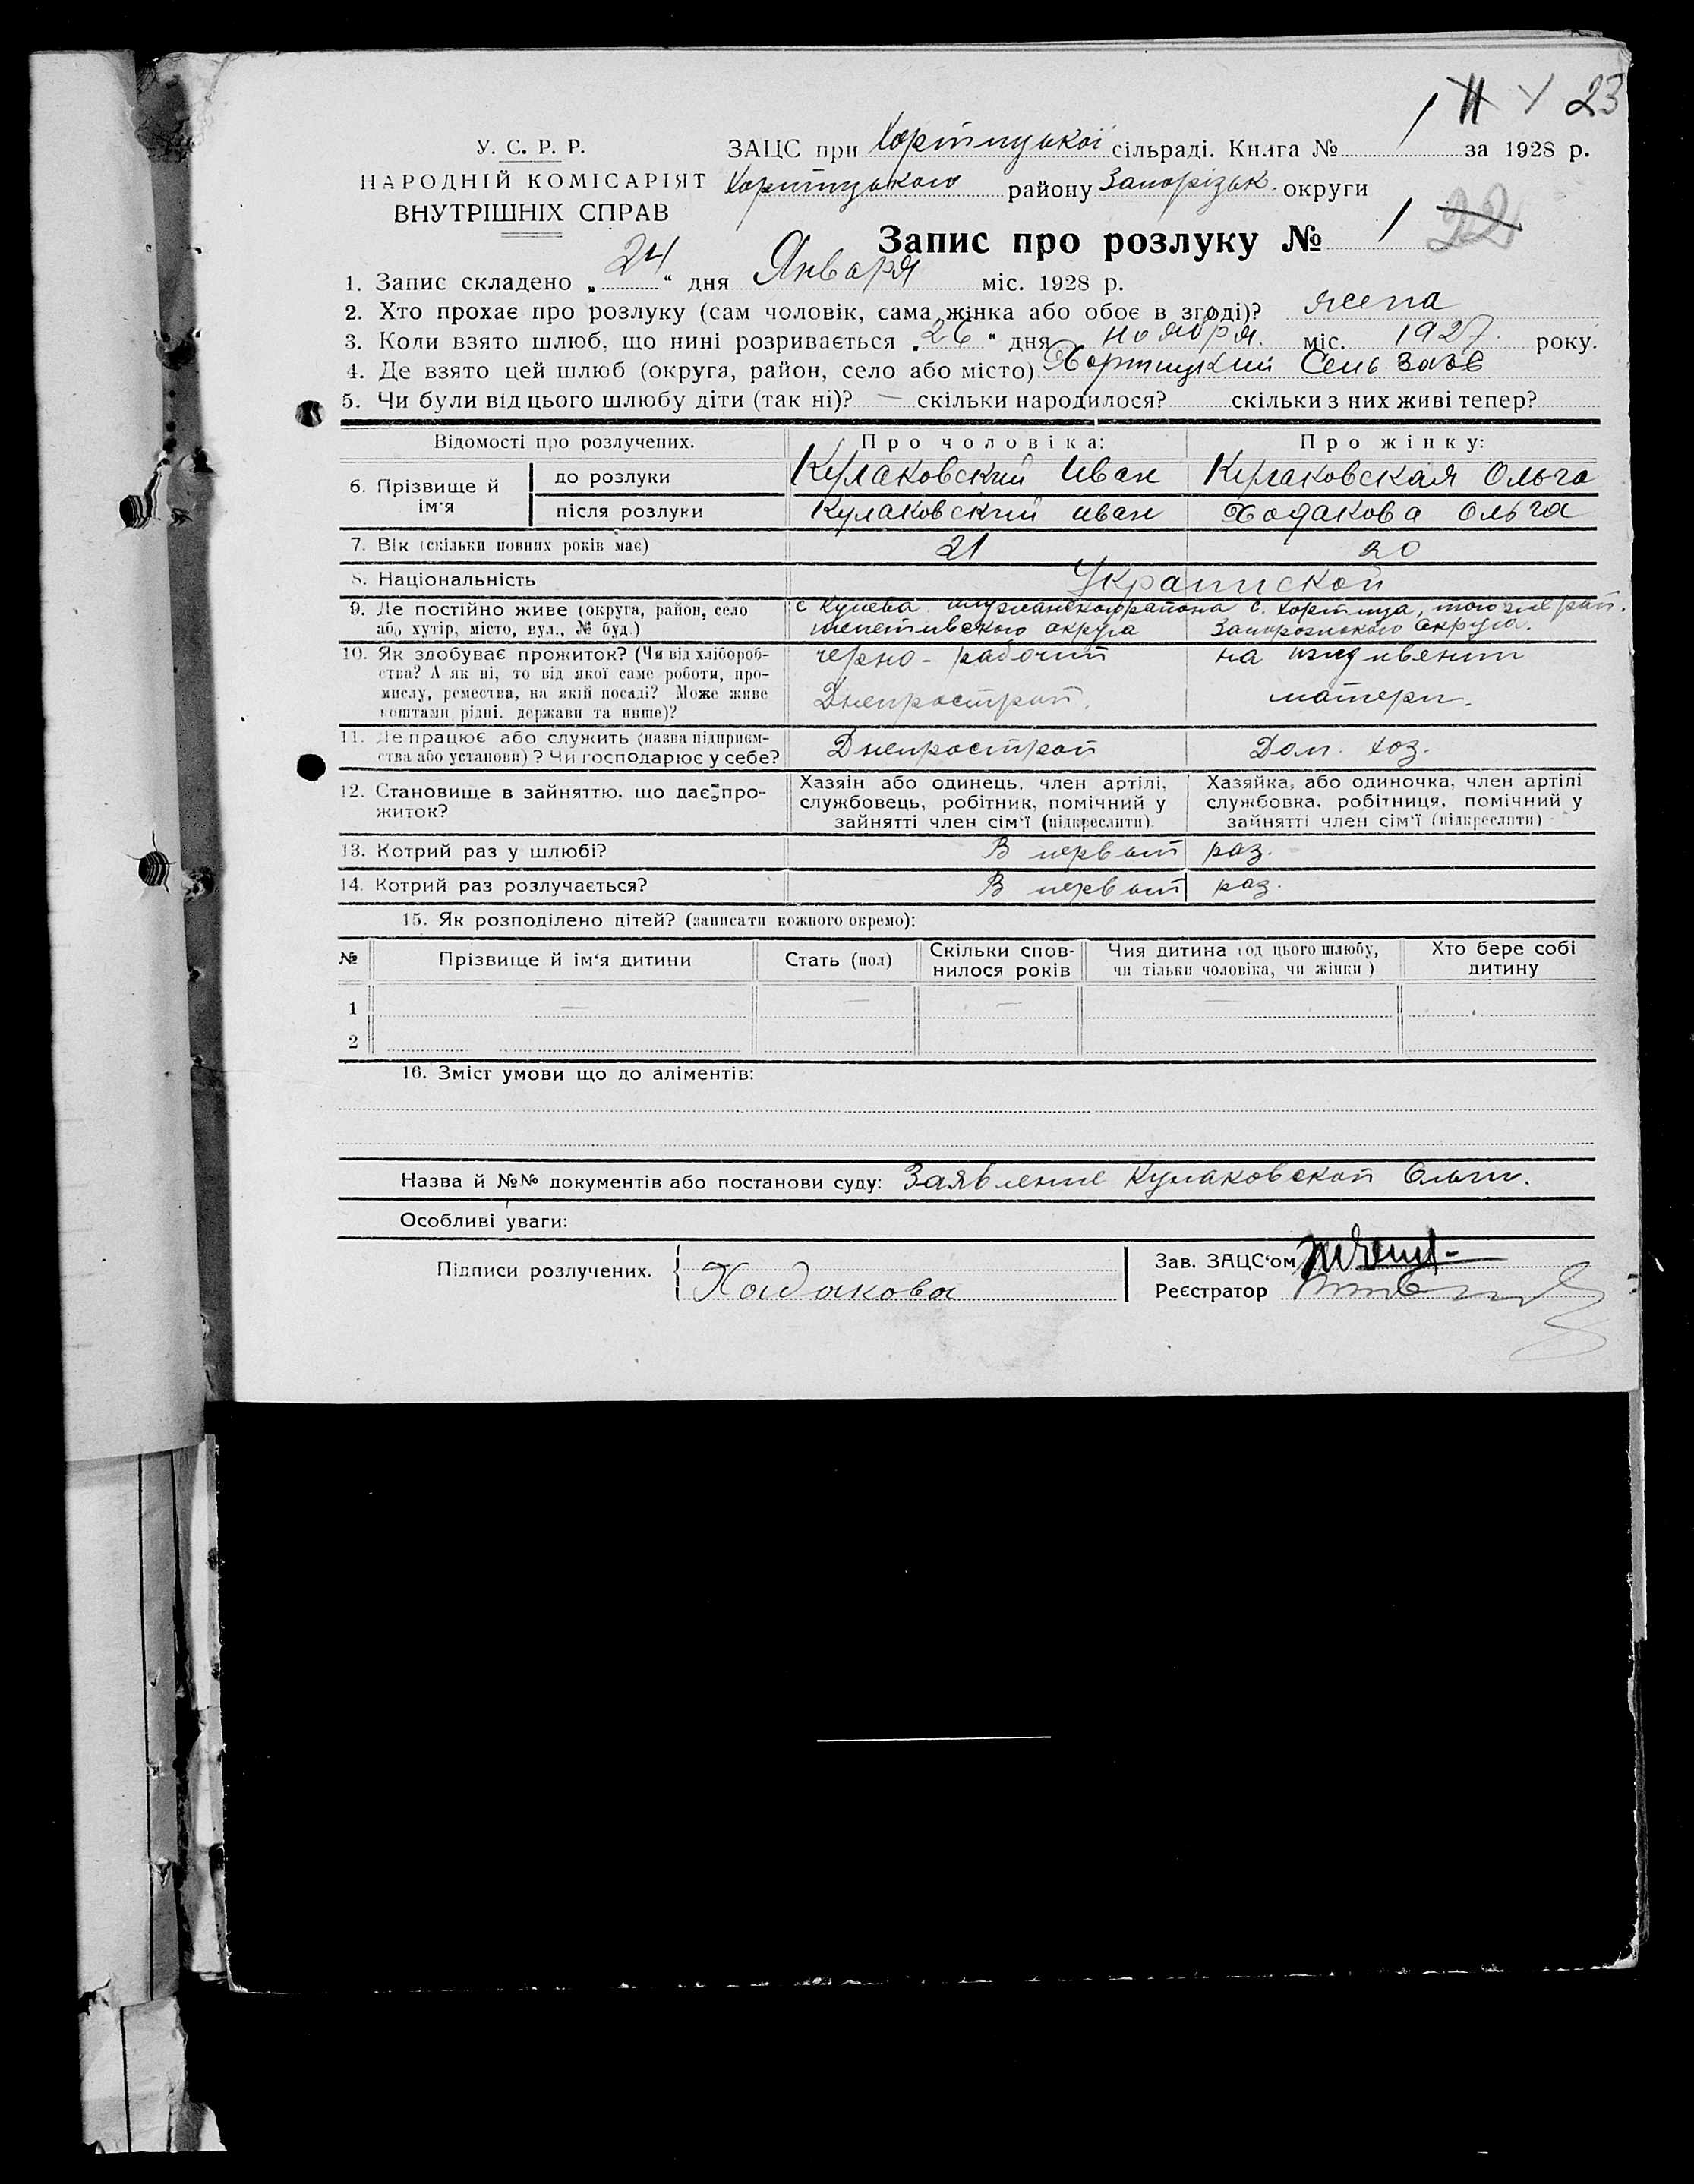 23
У. С. Р. Р.
НАРОДНІЙ КОМІСАРІЯТ
ВНУТРІШНІХ СПРАВ
ЗАЦС при Хортицької сільраді. Книга № 1 за 1928 р.
Хортицького району Запорізьк. округи
Запис про розлуку № 1 22
1. Запис складено „ 24 “ дня Января міс. 1928 р.
2. Хто прохає про розлуку (сам чоловік, сама жінка або обоє в згоді)? жена
3. Коли взято шлюб, що нині розривається „ 26 “ дня ноября. міс. 1927 року.
4. Де взято цей шлюб (округа, район, село або місто) Хортицкий Сель
5. Чи були від цього шлюбу діти (так ні)? — скільки народилося? скільки з них живі тепер?
Відомості про розлучених. Про чоловіка: Про жінку:
6. Прізвище й ім'я до розлуки Кулаковский Иван Кулаковская Ольга
після розлуки Кулаковский Иван Ходакова Ольга
7. Вік (скільки повних років має) 21 20
8. Національність Украинской
9. Де постійно живе (округа, район, село с. Хортица, того же рай.
або хутір, місто, вул., № буд.) округа Запорожского округа.
10. Як здобуває прожиток? (Чи від хлібороб- черно-рабочий на иждивении
ства? А як ні, то від якої саме роботи, про-
мислу, ремества, на якій посаді? Може живе Днепрострой. матери.
коштами рідні, держави та инше)?
11. Де працює або служить (назва підприєм- Днепрострой Дом. хоз.
ства або установи)? Чи господарює у себе?
12. Становище в зайняттю, що дає про-
житок?
Хазяін або одинець, член артілі,
службовець, робітник, помічний у
зайнятті член сім'ї (підкреслити).
Хазяйка, або одиночка, член артілі
службовка, робітниця, помічний у
зайнятті член сім'ї (підкреслити)
13. Котрий раз у шлюбі? В первый раз.
14. Котрий раз розлучається? В первый раз.
15. Як розподілено дітей? (записати кожного окремо):
№ Прізвище й ім'я дитини Стать (пол) Скільки спов-нилося років Чия дитина (од цього шлюбу, чи тільки чоловіка, чи жінки) Хто бере собі дитину
1 — — — —
2
16. Зміст умови що до аліментів:
Назва й №№ документів або постанови суду: Заявление Кулаковской Ольги.
Особливі уваги:
Підписи розлучених. Хадакова
Зав. ЗАЦС'ом
Реєстратор